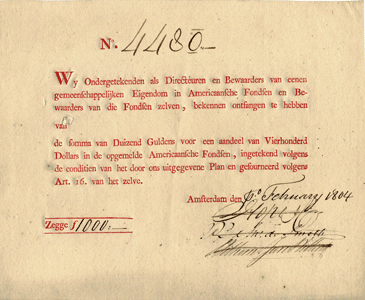 No. 4480.
Wy Ondergetekenden als Directeuren en Bewaarders van eenen
gemeenschappelyken Eigendom in Americaansche Fondsen en Be-
waarders van die Fondsen zelven, bekennen ontfangen te hebben
van
de somma van Duizend Guldens voor een aandeel van Vierhonderd
Dollars in de opgemelde Americaansche Fondsen, ingetekend volgens
de conditien van het door ons uitgegevene Plan en gefourneerd volgens
Art. 16. van het zelve.
Amsterdam den February 1804
Zegge f 1000:-